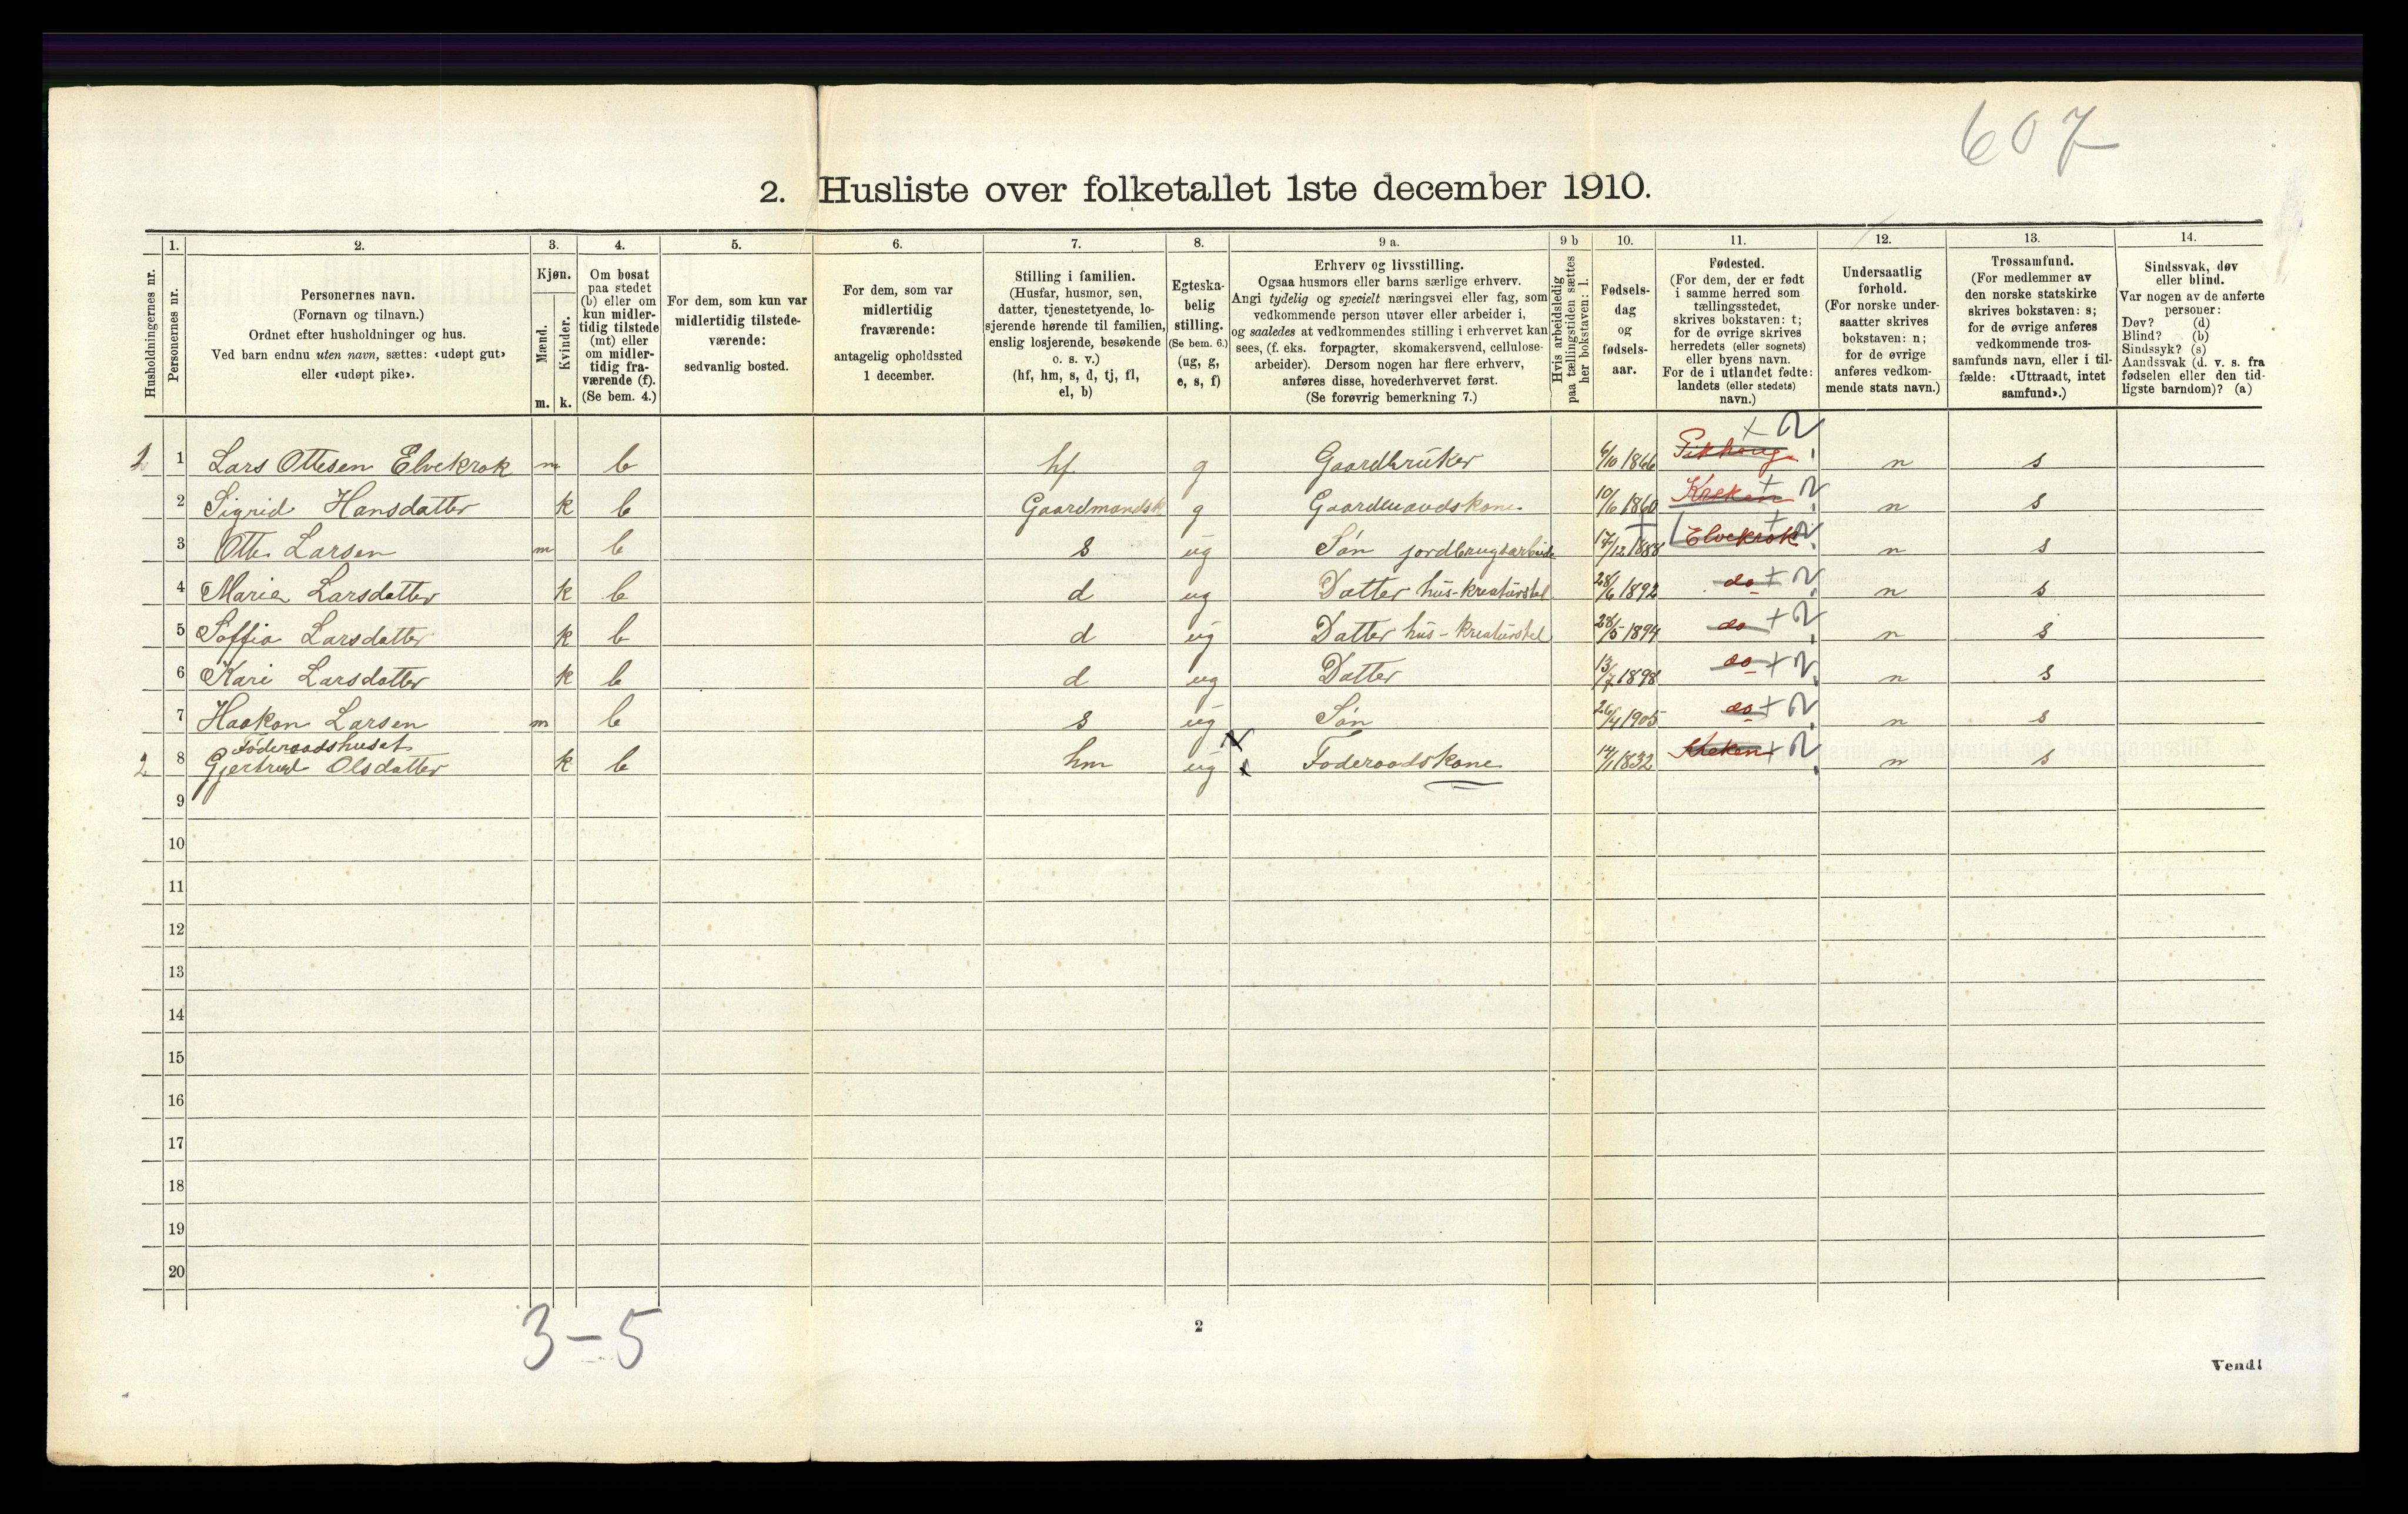 607
2. Husliste over folketallet 1ste december 1910.
Husholdningernes nr.
1. Personernes nr.
2. Personernes navn.
(Fornavn og tilnavn.)
Ordnet efter husholdninger og hus.
Ved barn endnu uten navn, sættes: «udøpt gut»
eller «udøpt pike».
3. Kjøn.
Mænd. m.
Kvinder. k.
4. Om bosat
paa stedet
(b) eller om
kun midler-
tidig tilstede
(mt) eller
om midler-
tidig fra-
værende (f).
(Se bem. 4.)
5. For dem, som kun var
midlertidig tilstede-
værende:
sedvanlig bosted.
6. For dem, som var
midlertidig
fraværende:
antagelig opholdssted
1 december.
7. Stilling i familien.
(Husfar, husmor, søn,
datter, tjenestetyende, lo-
sjerende hørende til familien,
enslig losjerende, besøkende
o. s. v.)
(hf, hm, s, d, tj, fl,
el, b)
8. Egteska-
belig
stilling.
(Se bem. 6.)
(ug, g,
e, s, f)
9 a. Erhverv og livsstilling.
Ogsaa husmors eller barns særlige erhverv.
Angi tydelig og specielt næringsvei eller fag, som
vedkommende person utøver eller arbeider i,
og saaledes at vedkommendes stilling i erhvervet kan
sees, (f. eks. forpagter, skomakersvend, cellulose-
arbeider). Dersom nogen har flere erhverv,
anføres disse, hovederhvervet først.
(Se forøvrig bemerkning 7.)
9 b Hvis arbeidsledig
paa tællingstiden sættes
her bokstaven: l.
10. Fødsels-
dag
og
fødsels-
aar.
11. Fødested.
(For dem, der er født
i samme herred som
tællingsstedet,
skrives bokstaven: t;
for de øvrige skrives
herredets (eller sognets)
eller byens navn.
For de i utlandet fødte:
landets (eller stedets)
navn.)
12. Undersaatlig
forhold.
(For norske under-
saatter skrives
bokstaven: n;
for de øvrige
anføres vedkom-
mende stats navn.)
13. Trossamfund.
(For medlemmer av
den norske statskirke
skrives bokstaven: s;
for de øvrige anføres
vedkommende tros-
samfunds navn, eller i til-
fælde: «Uttraadt, intet
samfund».)
14. Sindssvak, døv
eller blind.
Var nogen av de anførte
personer:
Døv? (d)
Blind? (b)
Sindssyk? (s)
Aandssvak (d. v. s. fra
fødselen eller den tid-
ligste barndom)? (a)
1 1 Lars Ottesen Elvekrok m b hf g Gaardbruker 6/10 1866 n s
2 Sigrid Hansdatter k b Gaardmandsk g Gaardmandskone 10/6 1860 n s
3 Otte Larsen m b s ug Søn jordbrugsarbeide 17/12 1888 Elvekrok n s
4 Marie Larsdatter k b d ug Datter hus-kreaturstel 28/6 1892 do n s
5 Soffia Larsdatter k b d ug Datter hus-kreaturstel 28/5 1894 do n s
6 Kari Larsdatter k b d ug Datter 13/7 1898 do n s
7 Haakon Larsen m b s ug Søn 26/4 1905 do n s
Føderaadshuset
2 8 Gjertrud Olsdatter k b hm ug Føderaadskone 14/1 1832 n s
9
10
11
12
13
14
15
16
17
18
19
20
3-5
2
Vend!